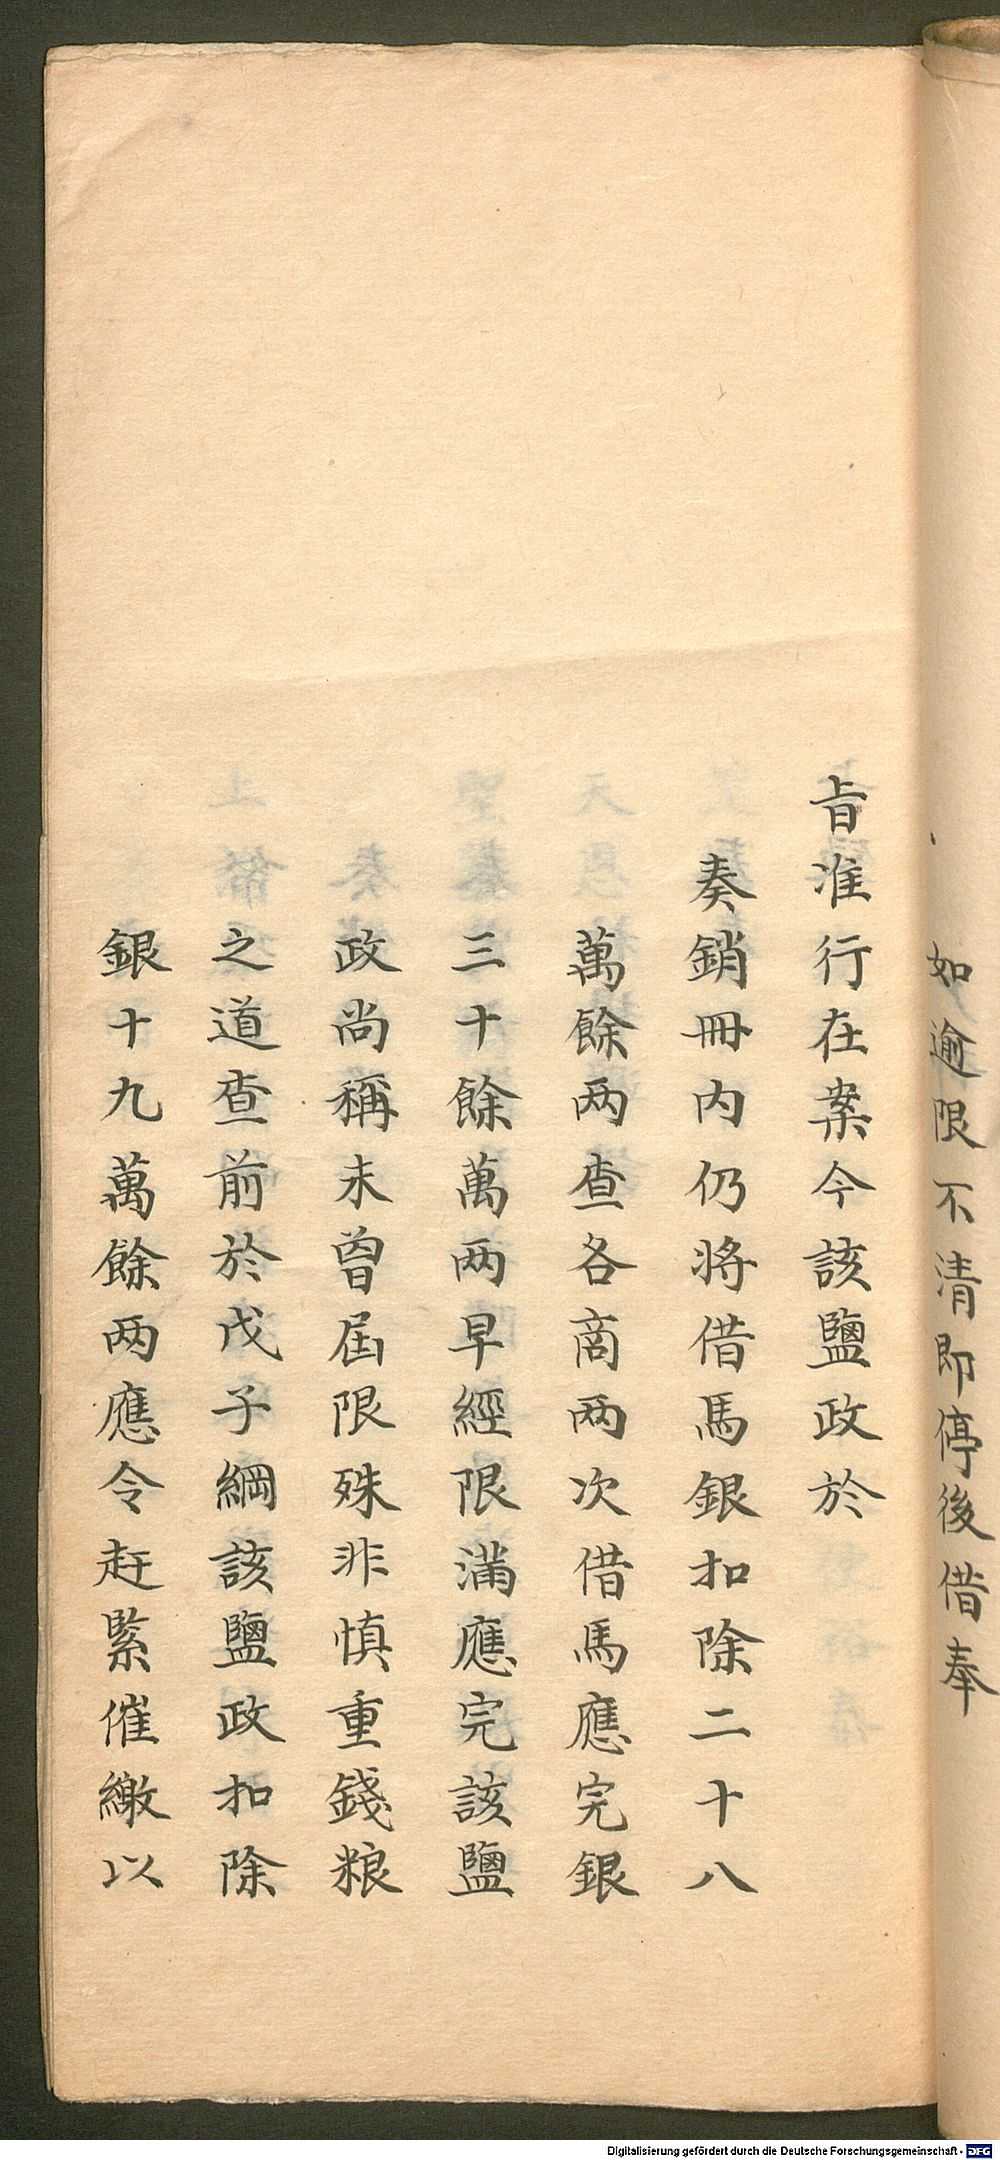 如逾限不清即停後借奉
旨准行在案今該鹽政於
奏銷冊内仍將借馬銀扣除二十八
萬餘两查各商两次借馬應完銀
三十餘萬两早經限滿應完該鹽
政尚稱未曾屆限殊非慎重錢粮
之道查前於戊子綱該鹽政扣除
銀十九萬餘两應令赶緊催繳以
Digitalisierung gefördert durch die Deutsche Forschungsgemeinschaft - DFG